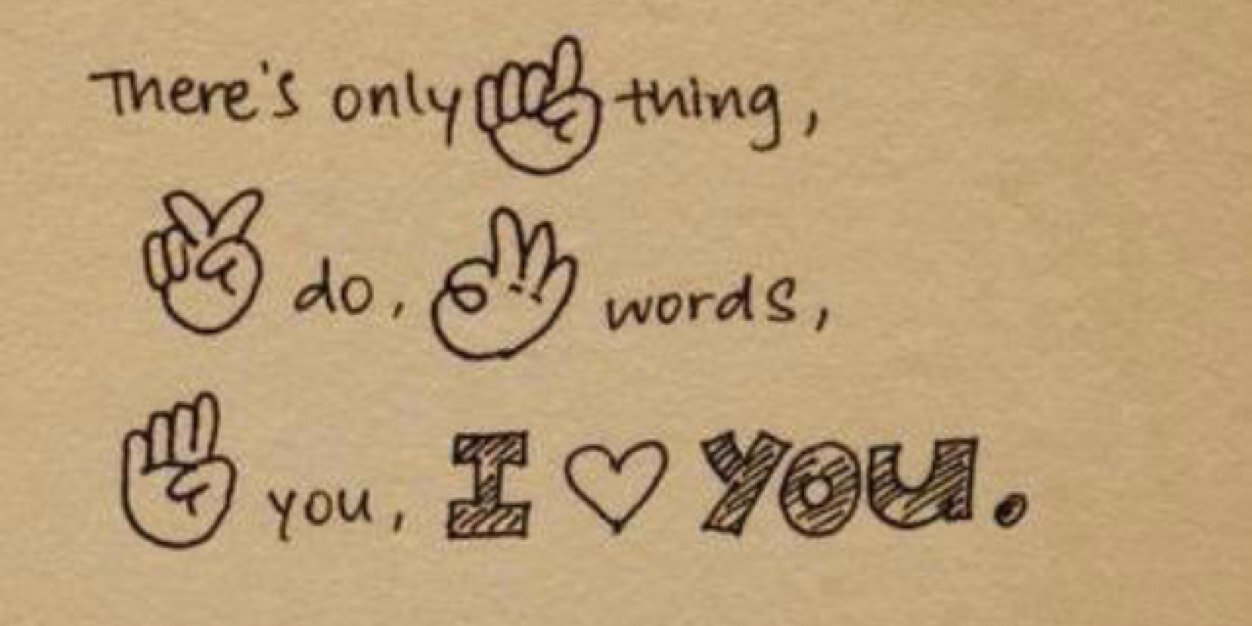 There's only ☝ thing,
✌ do. 👌 words,
you, I ♡ YOU.